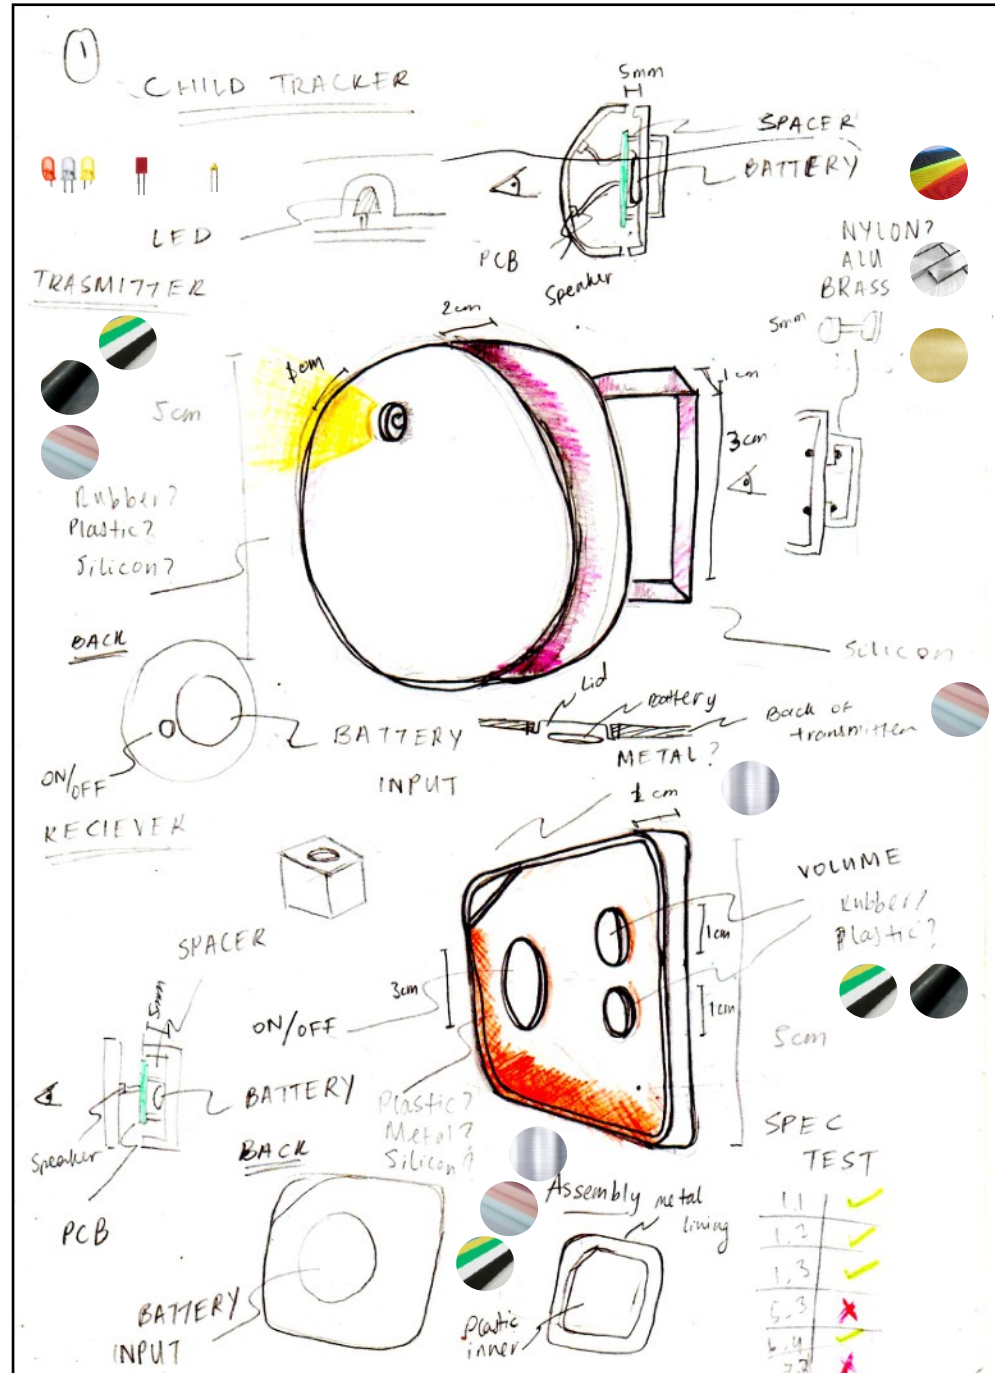 1
CHILD TRACKER
5mm
SPACER
BATTERY
LED
PCB
Speaker
NYLON?
ALU
BRASS
5mm
TRASMITTER
2cm
1cm
5cm
1cm
3cm
Rubber?
Plastic?
Silicon?
Silicon
BACK
ON/OFF
BATTERY
INPUT
Lid
Battery
Back of
transmitter
METAL?
RECIEVER
1 cm
VOLUME
Rubber?
Plastic?
SPACER
5mm
3cm
1cm
1cm
ON/OFF
5cm
BATTERY
Speaker
PCB
Plastic?
Metal?
Silicon?
BACK
BATTERY
INPUT
Assembly
metal
lining
Plastic
inner
SPEC
TEST
1.1 ✓
1.2 ✓
1.3 ✓
5.3 ✗